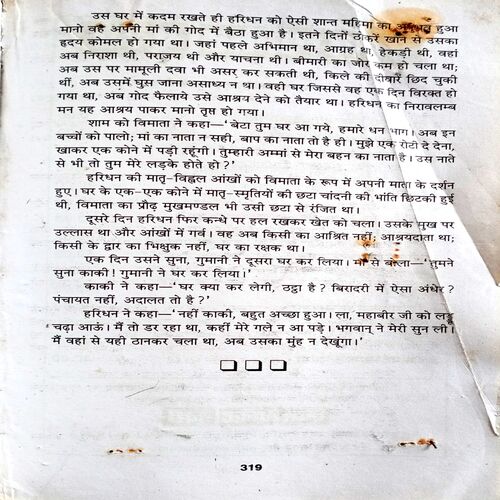 उस घर में कदम रखते ही हरिधन को ऐसी शान्त महिमा का अनुभव हुआ
मानो वह अपनी मां की गोद में बैठा हुआ है। इतने दिनों ठोकरें खाने से उसका
हृदय कोमल हो गया था। जहां पहले अभिमान था, आग्रह था, हेकड़ी थी, वहां
अब निराशा थी, पराजय थी और याचना थी। बीमारी का जोर कम हो चला था;
अब उस पर मामूली दवा भी असर कर सकती थी, किले की दीवारें छिद चुकी
थीं, अब उसमें घुस जाना असाध्य न था। वही घर जिससे वह एक दिन विरक्त हो
गया था, अब गोद फैलाये उसे आश्रय देने को तैयार था। हरिधन का निरावलम्ब
मन यह आश्रय पाकर मानो तृप्त हो गया।
शाम को विमाता ने कहा—'बेटा तुम घर आ गये, हमारे धन भाग। अब इन
बच्चों को पालो; मां का नाता न सही, बाप का नाता तो है ही। मुझे एक रोटी दे देना,
खाकर एक कोने में पड़ी रहूंगी। तुम्हारी अम्मां से मेरा बहन का नाता है। उस नाते
से भी तो तुम मेरे लड़के होते हो?'
हरिधन की मातृ-विह्वल आंखों को विमाता के रूप में अपनी माता के दर्शन
हुए। घर के एक-एक कोने में मातृ-स्मृतियों की छटा चांदनी की भांति छिटकी हुई
थी, विमाता का प्रौढ़ मुखमण्डल भी उसी छटा से रंजित था।
दूसरे दिन हरिधन फिर कन्धे पर हल रखकर खेत को चला। उसके मुख पर
उल्लास था और आंखों में गर्व। वह अब किसी का आश्रित नहीं, आश्रयदाता था;
किसी के द्वार का भिक्षुक नहीं, घर का रक्षक था।
एक दिन उसने सुना, गुमानी ने दूसरा घर कर लिया। मां से बोला—'तुमने
सुना काकी! गुमानी ने घर कर लिया।'
काकी ने कहा—'घर क्या कर लेगी, ठट्ठा है? बिरादरी में ऐसा अंधेर?
पंचायत नहीं, अदालत तो है?'
हरिधन ने कहा—'नहीं काकी, बहुत अच्छा हुआ। ला, महाबीर जी को लड्डू
'चढ़ा आऊं। मैं तो डर रहा था, कहीं मेरे गले न आ पड़े। भगवान् ने मेरी सुन ली।
मैं वहां से यही ठानकर चला था, अब उसका मुंह न देखूंगा।'
319